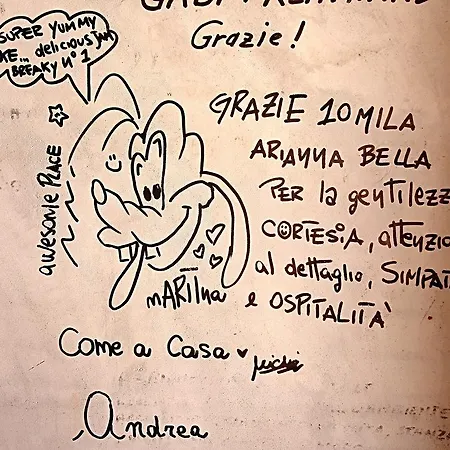 Grazie!
SUPER YUMMY
... delicious JAM
BREAKY Nº 1
awesome PLACE
GRAZIE 10MILA
ARIANNA BELLA
PER la gentilezz
CORTESIA, attenzio
al dettaglio, SIMPAT
e OSPITALITÀ
MARTINA
Come a Casa
Andrea